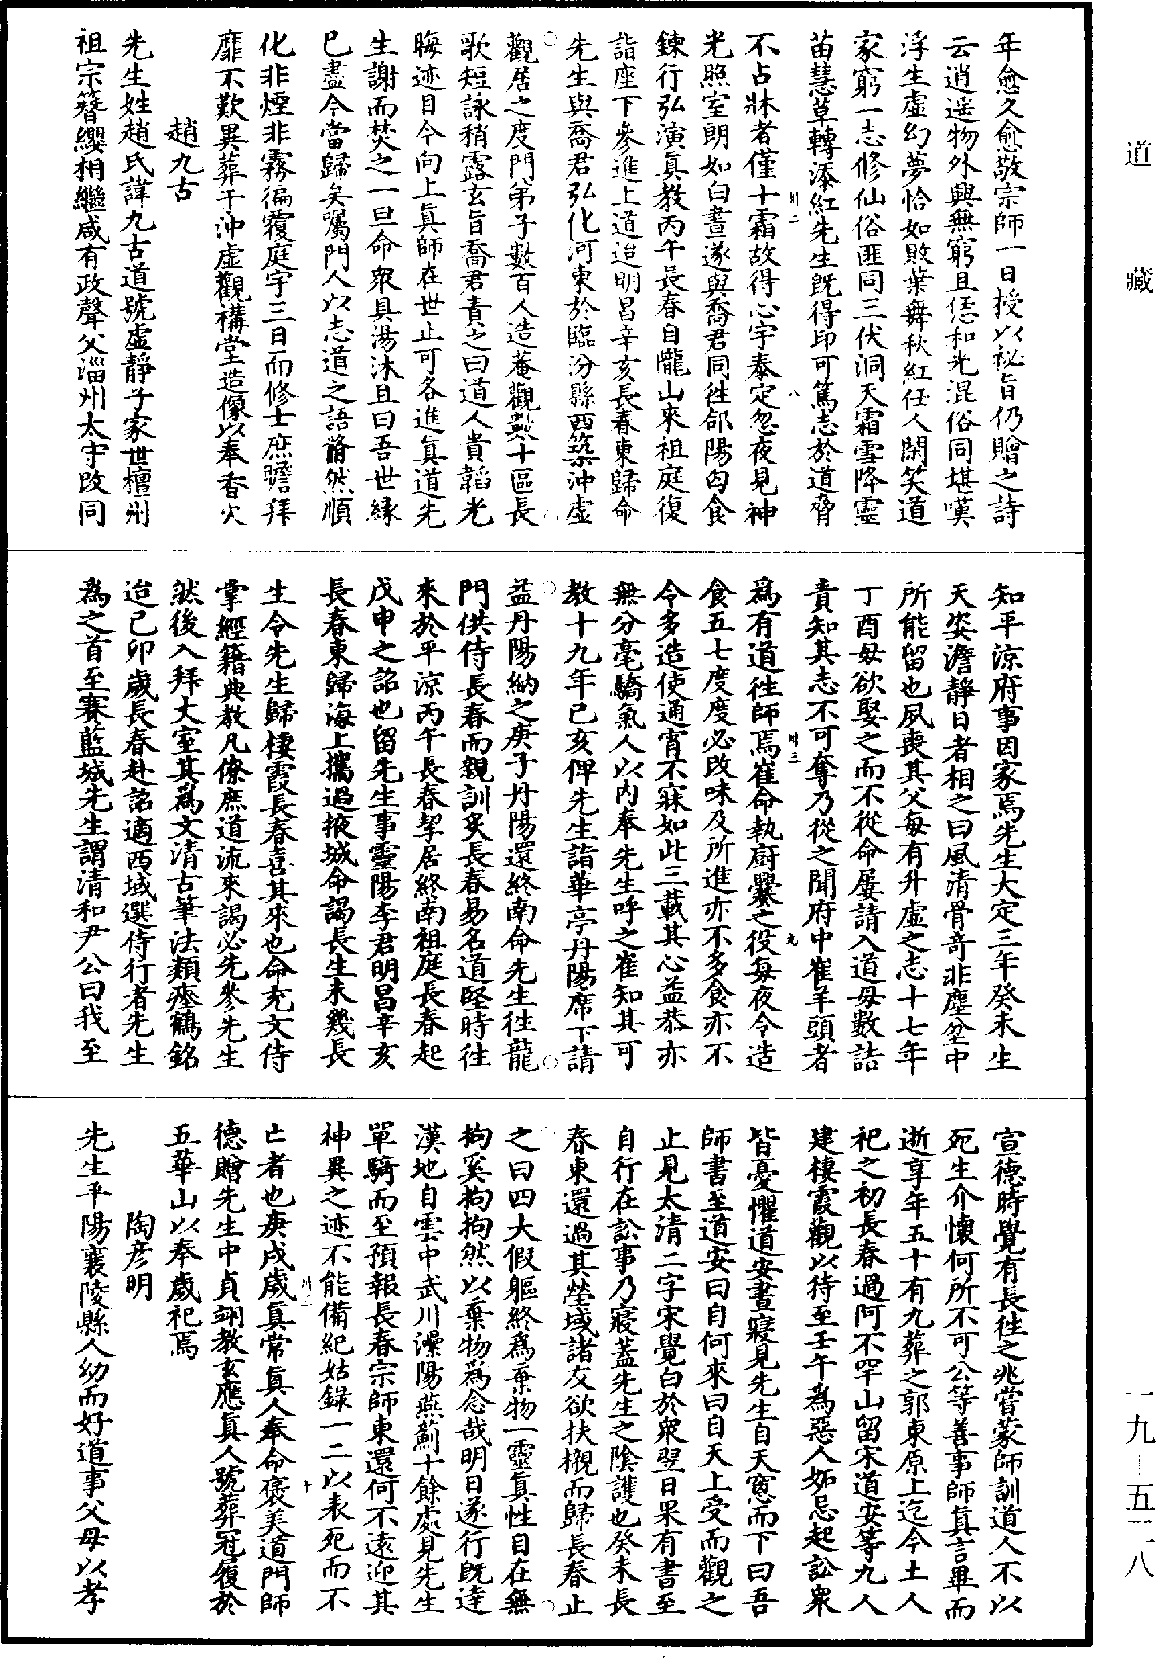 道藏
一九—五二八
年愈久愈敬宗師一日授以祕旨仍贈之詩
云逍遥物外興無窮且恁和光混俗同堪嘆
浮生虛幻夢恰如敗葉舞秋紅任人閑笑道
家窮一志修仙俗匪同三伏洞天霜雪降靈
苗慧草轉添紅先生既得印可篤志於道脅
不占牀者僅十霜故得心宇泰定忽夜見神
光照室朗如白晝遂與喬君同徃郃陽匃食
鍊行弘演真教丙午長春自隴山來祖庭復
詣座下參進上道迨明昌辛亥長春東歸命
先生與喬君弘化河東於臨汾縣西築沖虛
觀居之度門弟子數百人造菴觀數十區長
歌短詠稍露玄旨喬君責之曰道人貴韜光
晦迹目今向上真師在世止可各進真道先
生謝而焚之一旦命衆具湯沐且曰吾世緣
已盡今當歸矣囑門人以志道之語翛然順
化非煙非霧徧覆庭宇三日而修士庶瞻拜
靡不歎異葬于沖虛觀構堂造像以奉香火
趙九古
先生姓趙氏諱九古道號虛靜子家世檀州
祖宗簪纓相繼咸有政聲父淄州太守改同
知平涼府事因家焉先生大定三年癸未生
天姿澹靜日者相之曰風清骨竒非塵坌中
所能留也夙喪其父每有升虛之志十七年
丁酉母欲娶之而不從命屢請入道母數詰
責知其志不可奪乃從之聞府中崔羊頭者
爲有道徃師焉崔命執厨爨之役每夜令造
食五七度度必改味及所進亦不多食亦不
令多造使通宵不寐如此三載其心益恭亦
無分毫驕氣人以内奉先生呼之崔知其可
教十九年己亥俾先生詣華亭丹陽席下請
益丹陽納之庚子丹陽還終南命先生徃龍
門供侍長春而親訓炙長春易名道堅時徃
來於平涼丙午長春挈居終南祖庭長春起
戊申之詔也留先生事靈陽李君明昌辛亥
長春東歸海上攜過掖城命謁長生未幾長
生令先生歸棲霞長春喜其來也命充文侍
掌經籍典教凡僚庶道流來謁必先參先生
然後入拜丈室其爲文清古筆法類瘞鶴銘
迨己卯歲長春赴詔適西域選侍行者先生
為之首至賽藍城先生謂清和尹公曰我至
宣德時覺有長徃之兆嘗蒙師訓道人不以
死生介懷何所不可公等善事師真言畢而
逝享年五十有九葬之郭東原上迄今土人
祀之初長春過阿不罕山留宋道安等九人
建棲霞觀以待至壬午為惡人妬忌起訟衆
皆憂懼道安晝寢見先生自天窓而下曰吾
師書至道安曰自何來曰自天上受而觀之
止見太清二字宋覺白於衆翌日果有書至
自行在訟事乃寢蓋先生之陰護也癸未長
春東還過其塋域諸友欲扶櫬而歸長春止
之曰四大假軀終爲棄物一靈真性自在無
拘奚拘拘然以棄物爲念哉明日遂行既達
漢地自雲中武川灤陽燕薊十餘處見先生
單騎而至預報長春宗師東還何不遠迎其
神異之迹不能備紀姑録一二以表死而不
亡者也庚戌歲真常真人奉命褒美道門師
德贈先生中貞翊教玄應真人號葬冠履於
五華山以奉歲祀焉
陶彦明
先生平陽襄陵縣人幼而好道事父母以孝